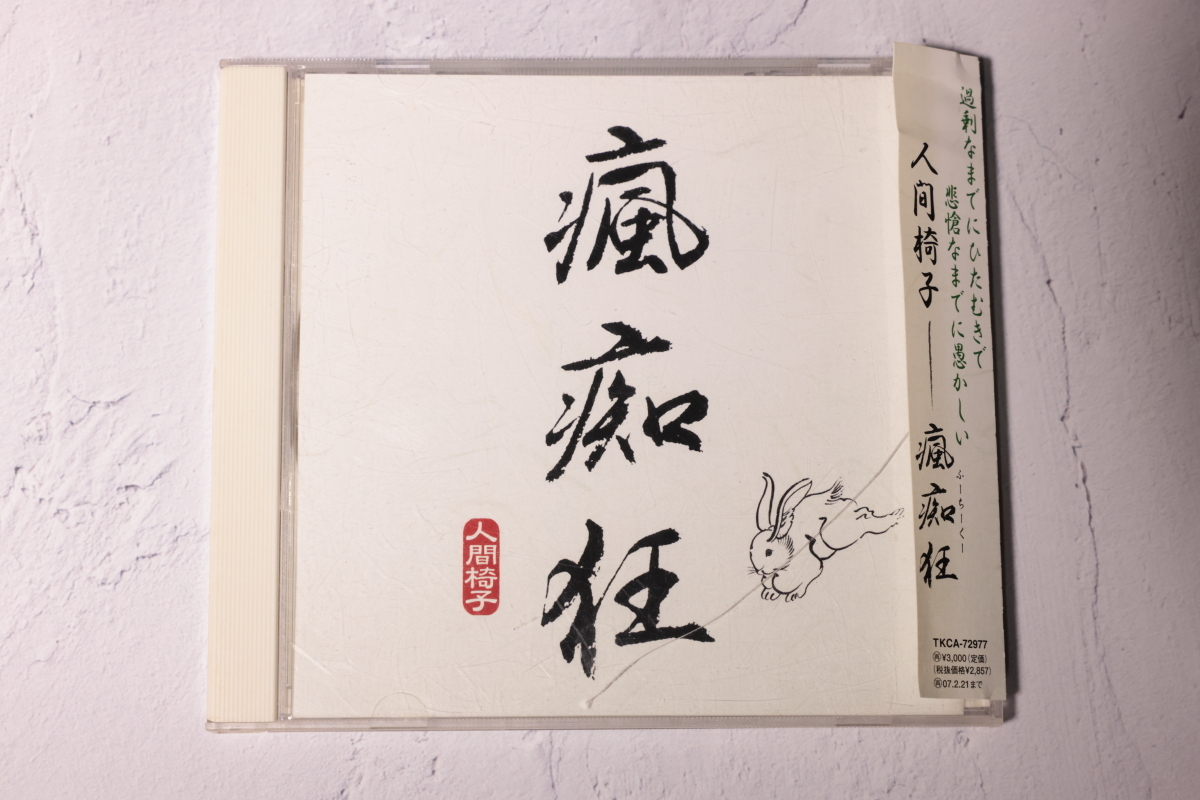 瘋痴狂
人間椅子
過剰なまでにひたむきで
悲愴なまでに愚かしい
人間椅子――瘋痴狂
ふーちーくー
TKCA-72977
㊢¥3,000(定価)
(税抜価格¥2,857)
㊢07.2.21まで